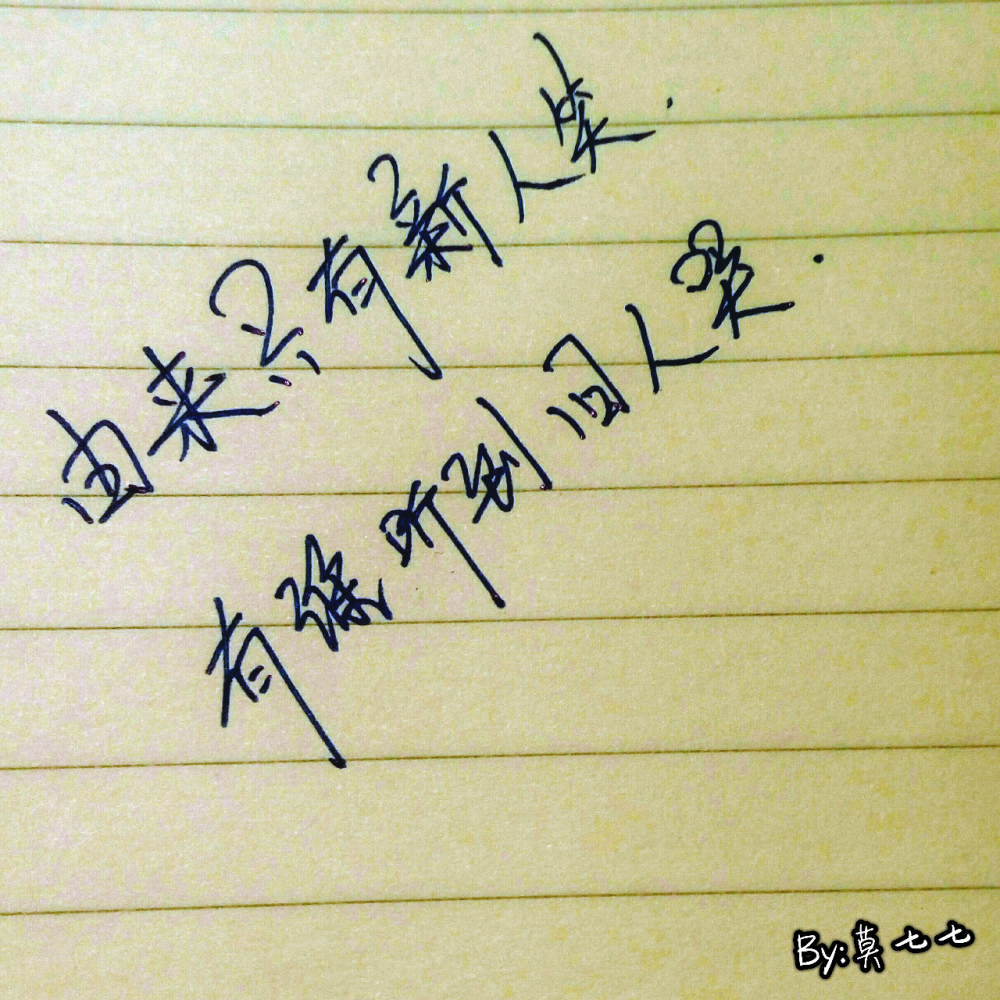 由来只有新人笑.
有谁听到旧人哭.
By:莫七七